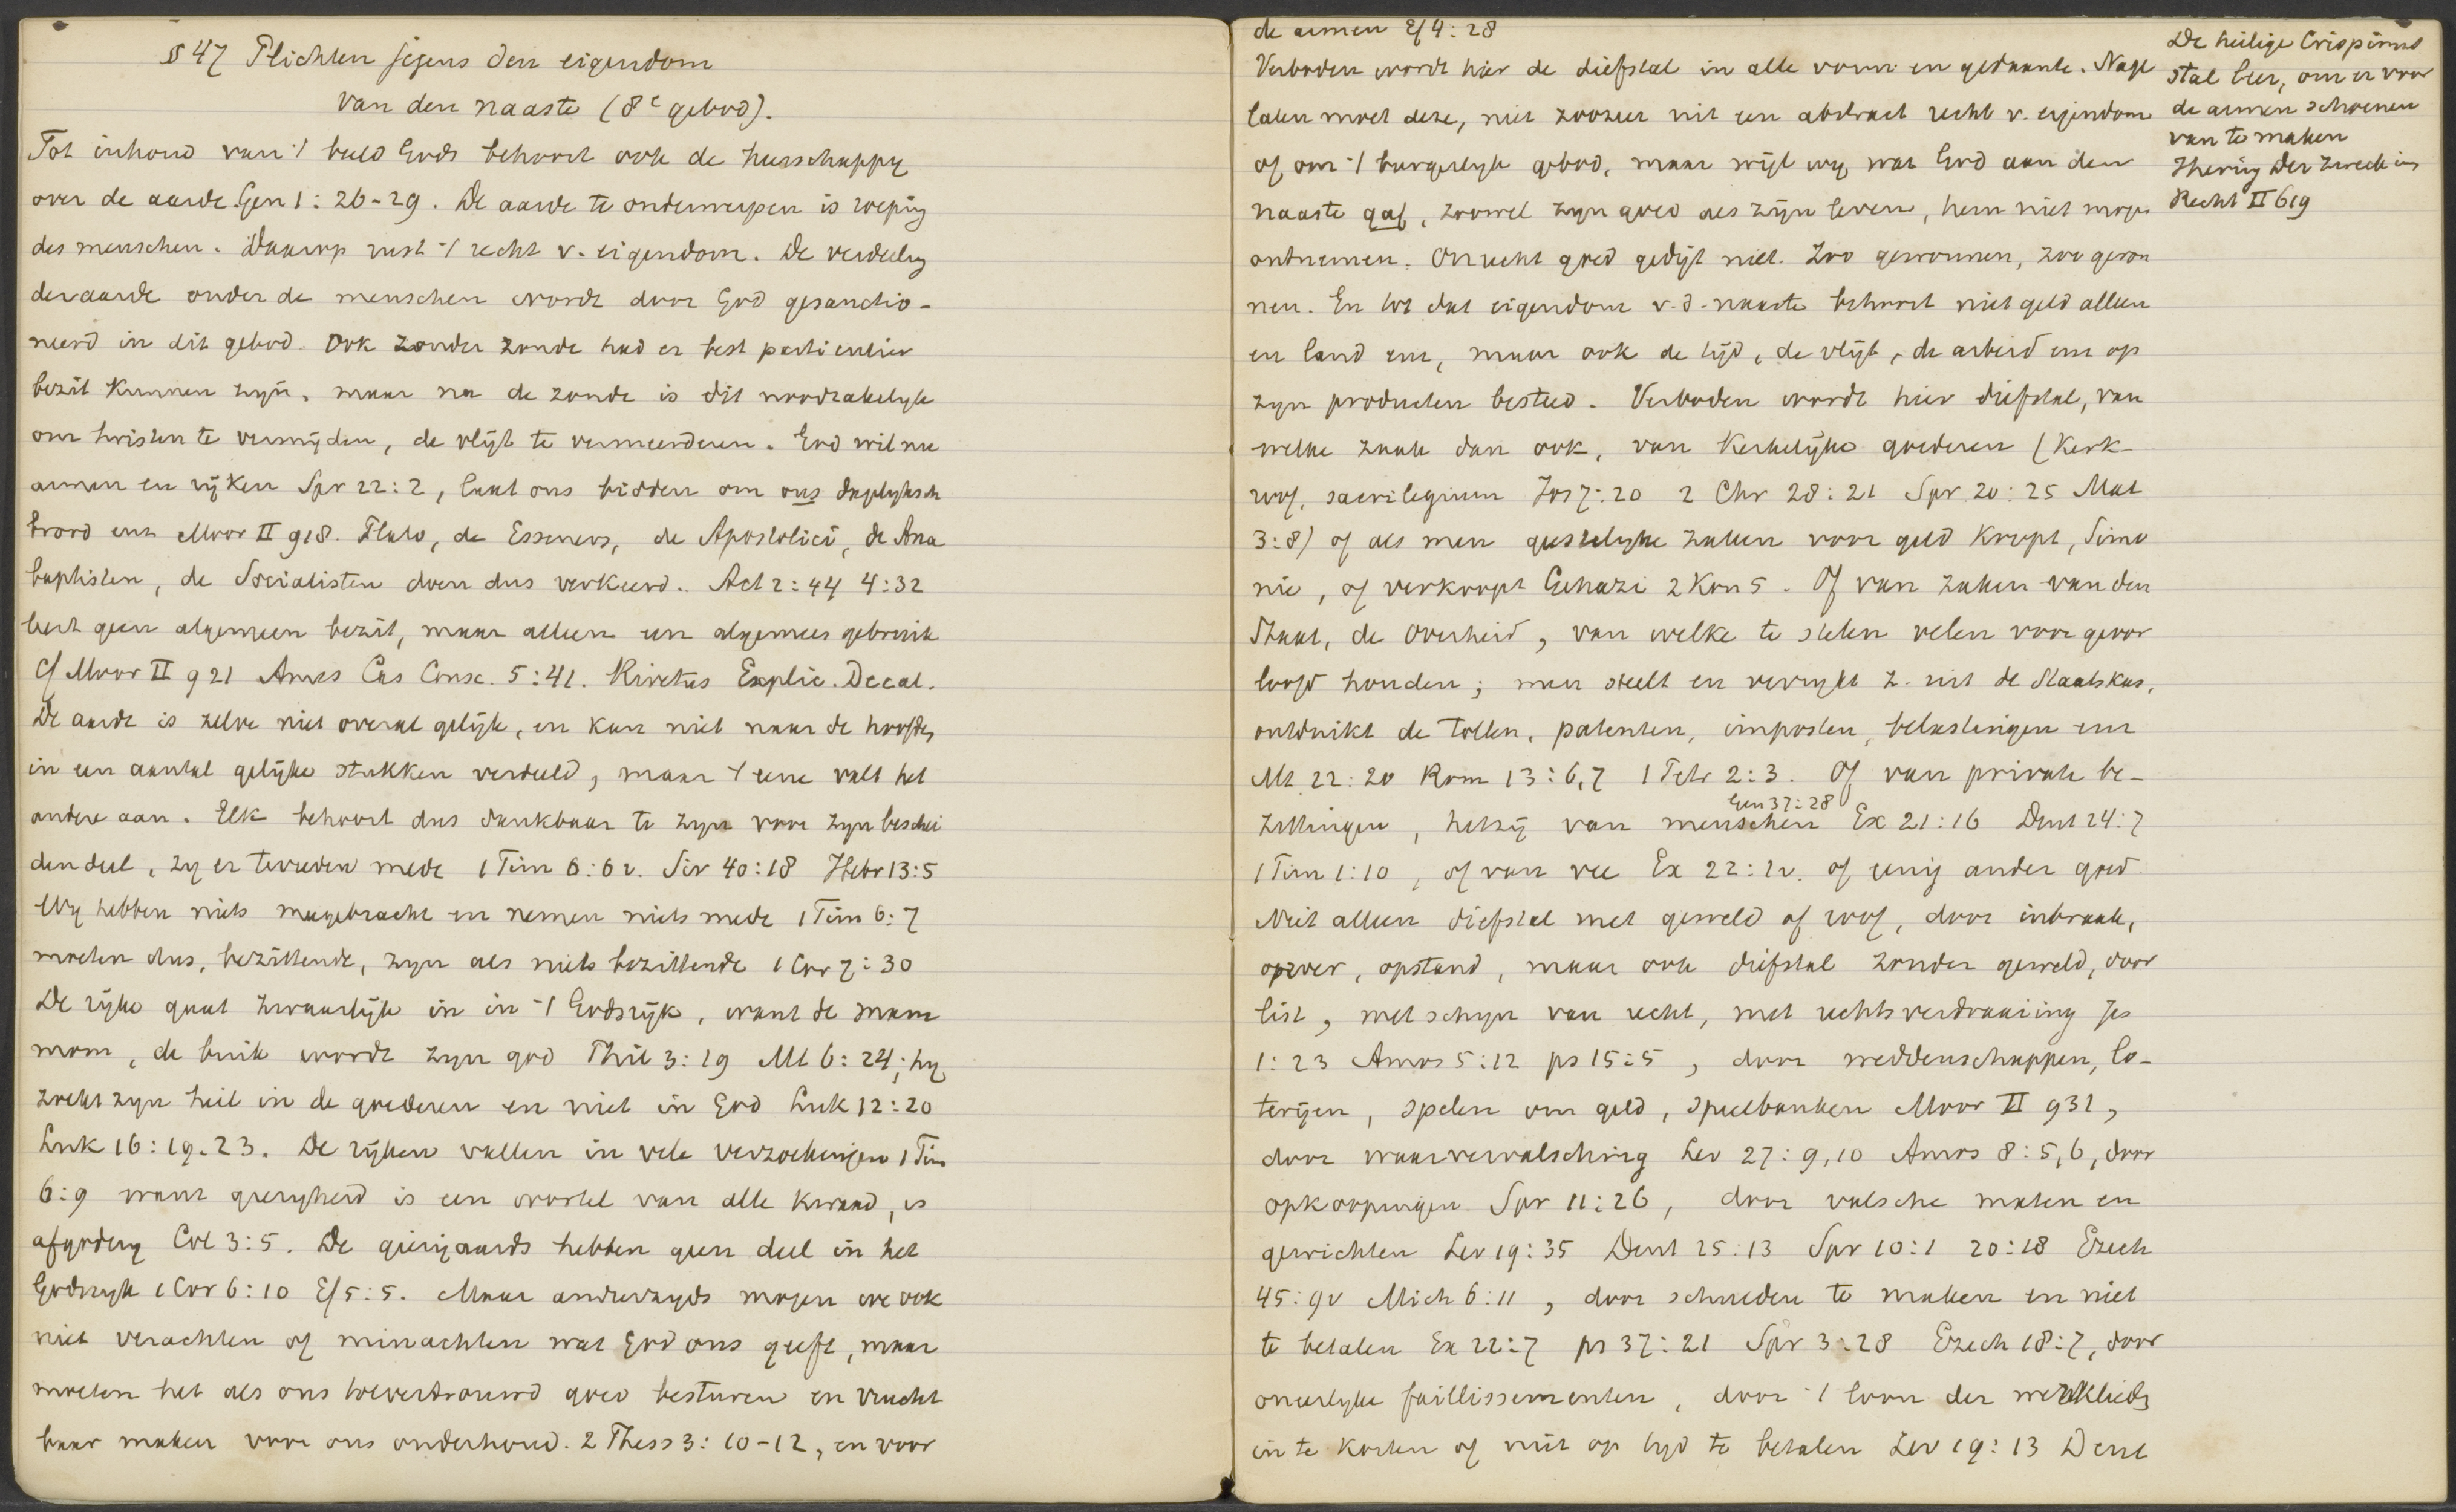 § 47 Plichten jegens den eigendom
van den naaste (8e gebod).
Tot inhoud van 't beeld Gods behoort ook de heerschappy
over de aarde. Gen 1:26-29. De aarde te onderwerpen is roeping
des menschen. Daarop rust 't recht v. eigendom. De verdeeling
der aarde onder de menschen wordt door God gesanctio-
neerd in dit gebod. Ook zonder zonde had er best particulier
bezit kunnen zyn, maar na de zonde is dit noodzakelyk
om twisten te vermijden, de vlijt te vermeerderen. God wil nu
armen en rijken Spr 22:2, laat ons bidden om ons dagelyksch
brood enz Moor II 918. Plato, de Esseners, de Apostolici, de Ana
baptisten, de Socialisten doen dus verkeerd. Act 2:44 4:32
leert geen algemeen bezit, maar alleen een algemeen gebruik
Cf Moor II 921 Ames Cas Consc. 5:41. Rivetus Explic. Decal.
De aarde is zelve niet overal gelijk, en kan niet naar de hoofden
in een aantal gelijke stukken verdeeld, maar 't eene valt het
andere aan. Elk behoort dus dankbaar te zyn voor zyn beschei
den deel, zy er tevreden mede 1 Tim 6:6v. Sir 40:18 Hebr 13:5
Wy hebben niets meegebracht en nemen niets mede 1 Tim 6:7
moeten dus, bezittende, zyn als niets bezittende 1 Cor 7:30
De rijke gaat zwaarlijk in in 't Godsrijk, want de mam
mom, de buik wordt zyn god Phil 3:19 Mt 6:24; hy
zoekt zyn heil in de goederen en niet in God Luk 12:20
Luk 16:19.23. De rijken vallen in vele verzoekingen 1 Tim
6:9 want gierigheid is een wortel van alle kwaad, is
afgodery Col 3:5. De gierigaards hebben geen deel in het
Godsryk 1 Cor 6:10 Ef 5:5. Maar anderzyds mogen we ook
niet verachten of minachten wat God ons geeft, maar
moeten het als ons toevertrouwd goed besturen en vrucht
baar maken voor ons onderhoud. 2 Thess 3:10-12, en voor
de armen Ef 4:28
Verboden wordt hier de diefstal in alle vorm en gedaante. Nage
laten moet deze, niet zoozeer uit een abstract recht v. eigendom
of om 't burgerlyk gebod, maar wijl wy, wat God aan den
naaste gaf, zoowel zyn goed als zijn leven, hem niet mogen
ontnemen. Onrecht goed gedijt niet. Zoo gewonnen, zoo geron
nen. En tot dat eigendom v.d. naaste behoort niet geld alleen
en land enz, maar ook de tijd, de vlijt, de arbeid enz op
zyn producten besteed. Verboden wordt hier diefstal, van
welke zaak dan ook, van Kerkelijke goederen (Kerk-
roof, sacrilegium Jos 7:20 2 Chr 28:21 Spr 20:25 Mal
3:8) of als men geestelyke zaken voor geld koopt, Simo
nie, of verkoopt Gehazi 2 Kon 5. Of van zaken van den
Staat, de Overheid, van welke te stelen velen voor geoor
loofd houden; men steelt en verrykt z. uit de Staatskas,
ontduikt de tollen, patenten, imposten, belastingen enz
Mt 22:20 Rom 13:6,7 1 Petr 2:3. Of van private be-
zittingen, hetzij van menschen Gen 37:28 Ex 21:16 Deut 24:7
1 Tim 1:10, of van vee Ex 22:1v. of eenig ander goed
Niet alleen diefstal met geweld of roof, door inbraak,
oproer, opstand, maar ook diefstal zonder geweld, door
list, met schyn van recht, met rechtsverdraaiing Jes
1:23 Amos 5:12 ps 15:5, door weddenschappen, lo-
terijen, spelen om geld, speelbanken Moor II 931,
door waarvervalsching Lev 27:9,10 Amos 8:5,6, door
opkoopingen Spr 11:26, door valsche maten en
gewichten Lev 19:35 Deut 25:13 Spr 10:1 20:18 Ezech
45:9v Mich 6:11, door schulden te maken en niet
te betalen Ex 22:7 ps 37:21 Spr 3:28 Ezech 18:7, door
oneerlyke faillissementen, door 't loon der werklieden
in te korten of niet op tyd te betalen Lev 19:13 Deut
De heilige Crispinus
stal leer, om er voor
de armen schoenen
van te maken
Ihering Der Zweck im
Recht II 619